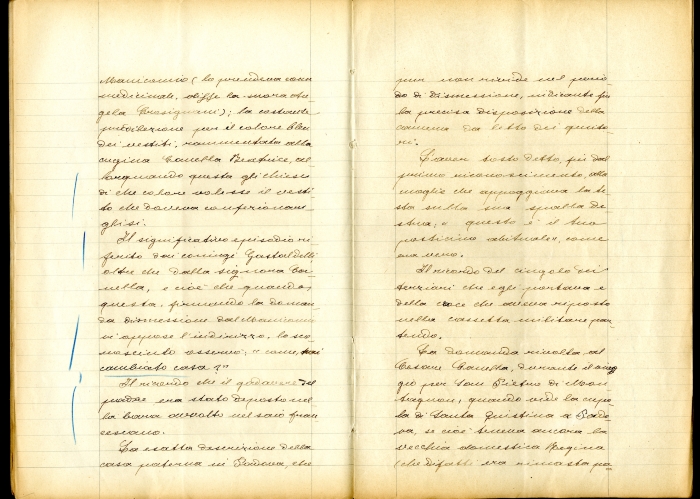 Manicomio (lo prendeva come
medicinale, disse la suora An-
gela Crosignani); la costante
predilezione per il colore bleu
dei vestiti, rammentata alla
cugina Canella Beatrice, al-
lorquando questa gli chiese
di che colore volesse il vesti-
to che doveva confezionar-
glisi.
Il significativo episodio ri-
ferito dai coniugi Gastaldelli
oltre che dalla signora Ca-
nella, e cioè che quando
questa, firmando la doman-
da dimessione dal Manicomio
vi appose l'indirizzo, lo sco-
nosciuto osservò: "come, hai
cambiato casa?"
Il ricordo che il cadavere del
padre era stato deposto nel-
la bara avvolto nel saio fran-
cescano.
La esatta descrizione della
casa paterna in Padova, che
pur non rivide nel perio-
do di dimessione, indicante fin
la precisa disposizione della
camera da letto dei genito-
ri.
L'aver tosto detto, fin dal
primo riconoscimento, alla
moglie che appoggiava la te-
sta sulla sua spalla de-
stra: "questo è il tuo
posticino abituale", come
era vero.
Il ricordo del cingolo dei
terziari che egli portava e
della croce che aveva riposto
nella cassetta militare par-
tendo.
La domanda rivolta al
Cesare Canella, durante il viag-
gio per San Pietro di Mon-
tagnon, quando vide la cupo-
la di Santa Giustina a Pado-
va, se cioè teneva ancora la
vecchia domestica Regina
(che difatti era rimasta pa-